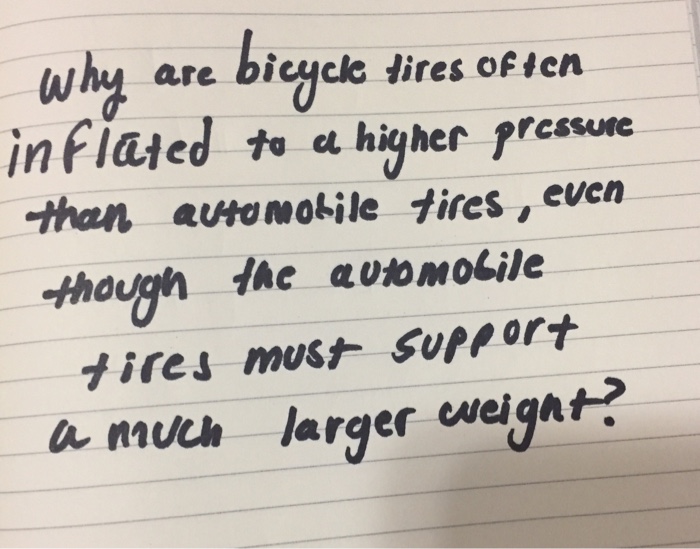 Why are bicycle tires often
inflated to a higher pressure
than automobile tires, even
though the automobile
tires must support
a much larger weight?